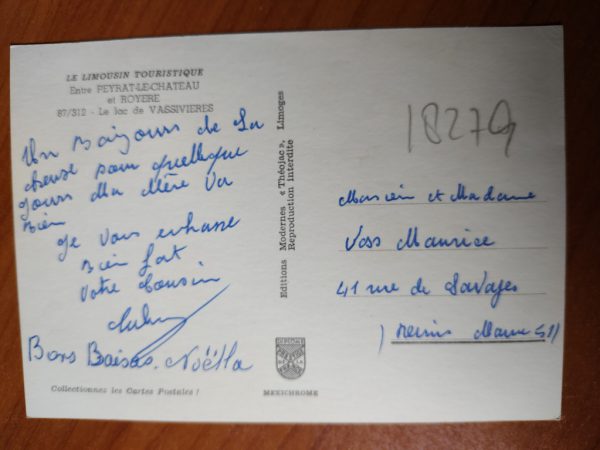 LE LIMOUSIN TOURISTIQUE
Entre PEYRAT-LE-CHATEAU
et ROYERE
87/312 - Le lac de VASSIVIERES
Un Bonjours de La
Creuse pour quellque
Jours Ma Mère Va
Bien
Je Vous embrasse
Bien fort
Votre Cousin
Bons Baisers. Noëlla
Collectionnez les Cartes Postales !
Editions Modernes « Théojac », Limoges
Reproduction Interdite
MEXICHROME
18279
Monsieur et Madame
Voss Maurice
41 rue de Savoye
Reims Marne 51